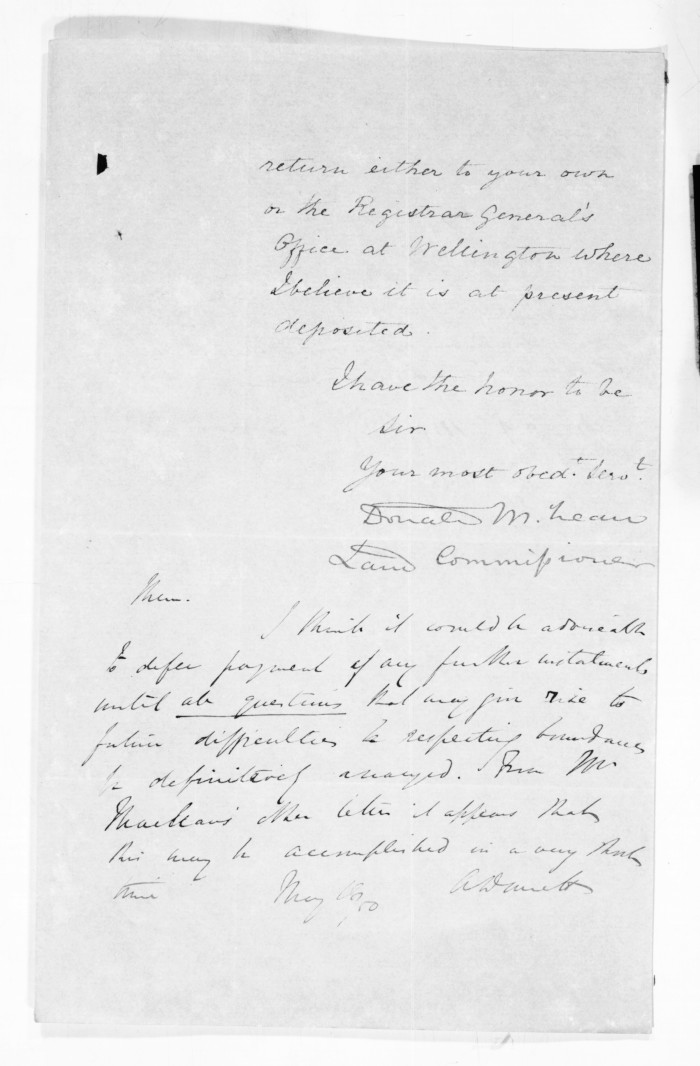 return either to your own
or the Registrar General's
Office at Wellington where
I believe it is at present
deposited.
I have the honor to be
Sir
Your most obedt. Servt.
Donald McLean
Land Commissioner
Mem.
I think it would be advisable
to defer payment of any further instalments
until all questions that may give rise to
future difficulties respecting boundaries
be definitively arranged. From Mr
MacLean's other letter it appears that
this may be accomplished in a very short
time May